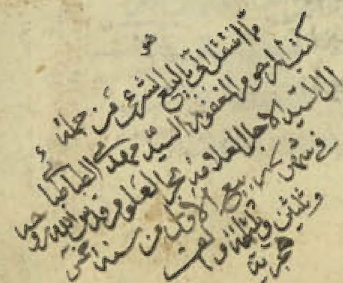 هو
مما انتقل الي بالبيع الشرعي من جملة
كتب المرحوم المغفور السيد مهدي الطباطبائي
ال السيد الاجل العلامة بحر العلوم قدس الله روحه
في شهر ربيع الاول من سنة خمس
وثلثين وثلثمائة والف
هجرية